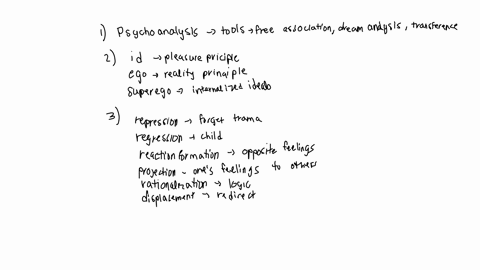 1) Psychoanalysis → tools → free association, dream analysis, transference
2) id → pleasure priciple
ego → reality prinaiple
superego → internalized ideals
3) repression → forget trama
regression → child
reaction formation → opposite feelings
projection - one's feelings to others
rationalization → logic
displacement → redirect